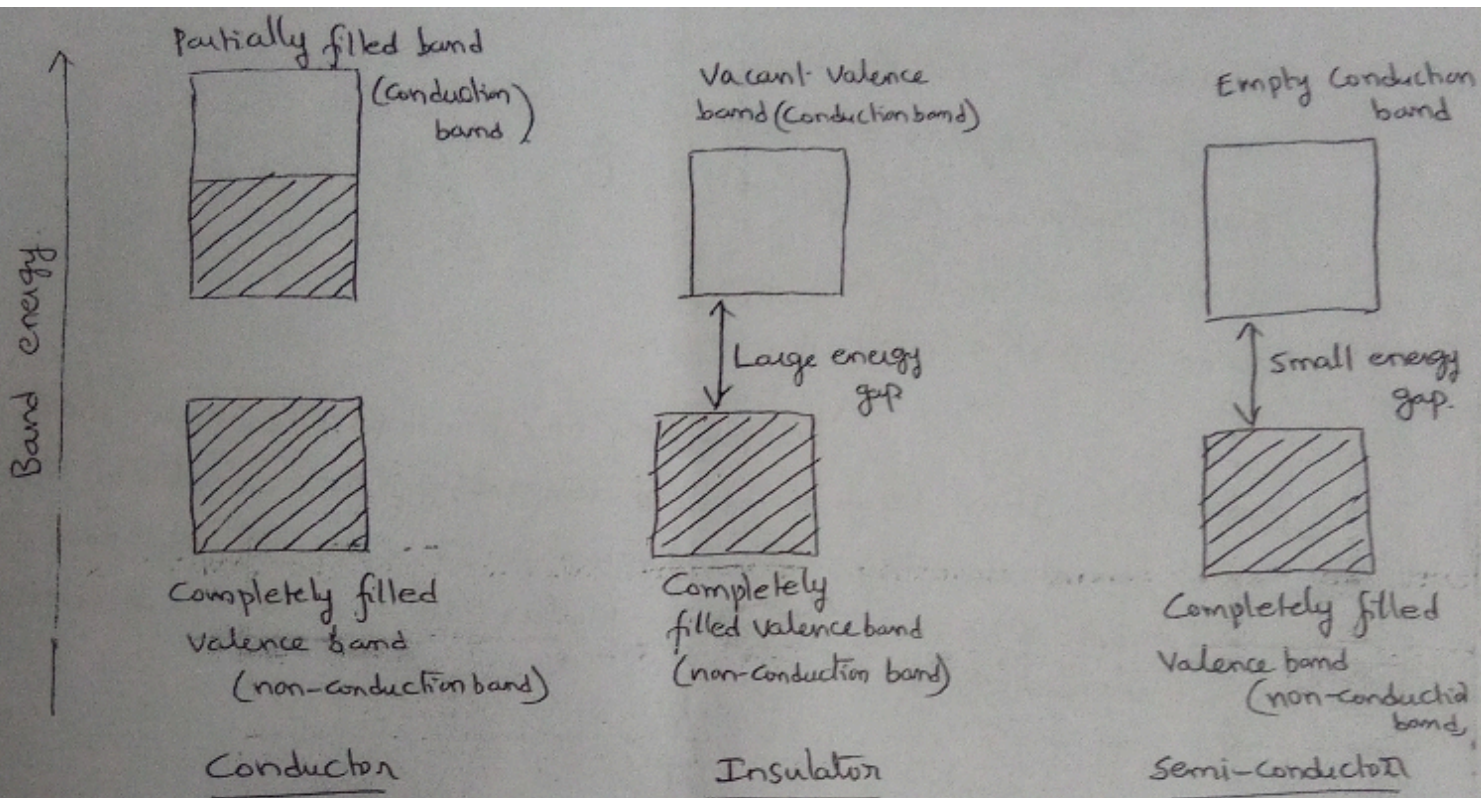 Band energy
Partially filled band
(Conduction
band)
Completely filled
valence band
(non-conduction band)
Conductor
Vacant valence
band (Conduction band)
Large energy
gap
Completely
filled valence band
(non-conduction band)
Insulator
Empty Conduction
band
Small energy
gap.
Completely filled
Valence band
(non-conductio
band,
Semi-conductor